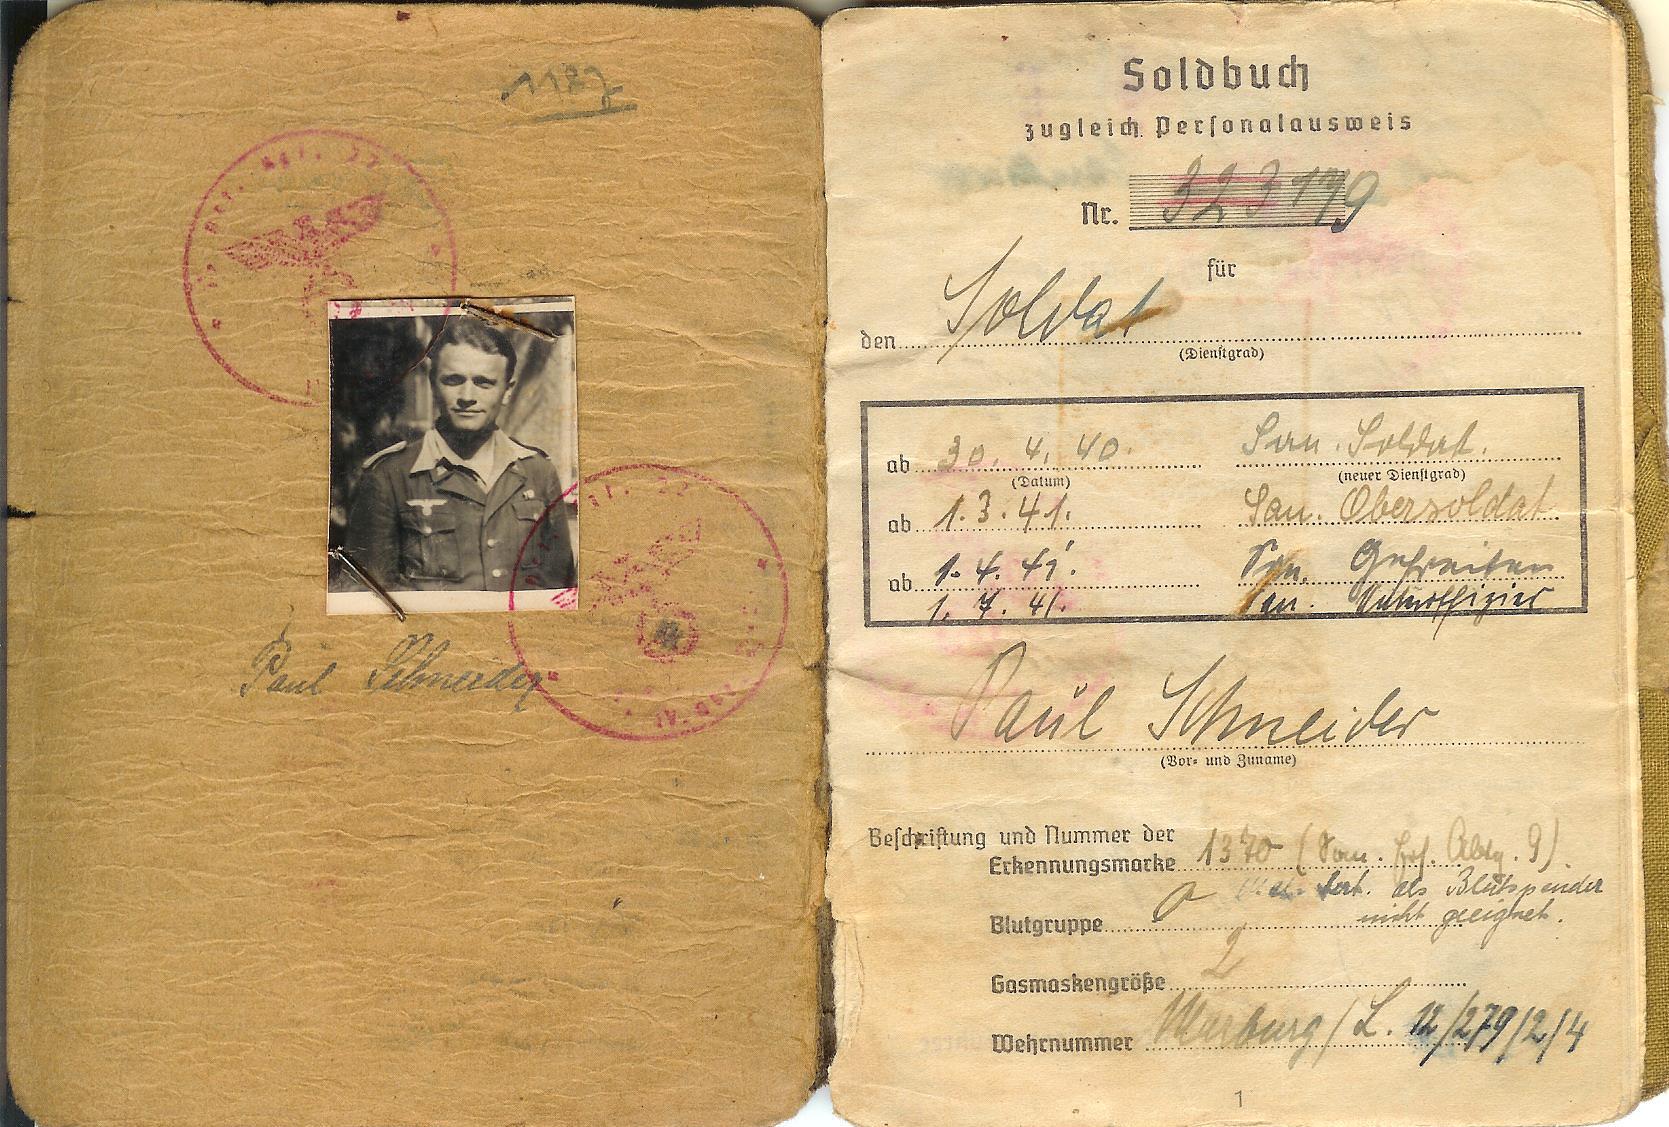 1187
Paul Schneider
Soldbuch
zugleich Personalausweis
Nr. 323 179
für
den Soldat
(Dienstgrad)
ab 30. 4. 40. San. Soldat.
(Datum) (neuer Dienstgrad)
ab 1. 3. 41. San. Obersoldat
ab 1. 4. 41. San. Gefreiten
1. 7. 41. San. Unteroffizier
Paul Schneider
(Vor- und Zuname)
Beschriftung und Nummer der
Erkennungsmarke 1370 (San. Ers. Abtg. 9).
als Blutspender
Blutgruppe nicht geeignet.
Gasmaskengröße 2
Wehrnummer Marburg/L. 12/279/2/4
1